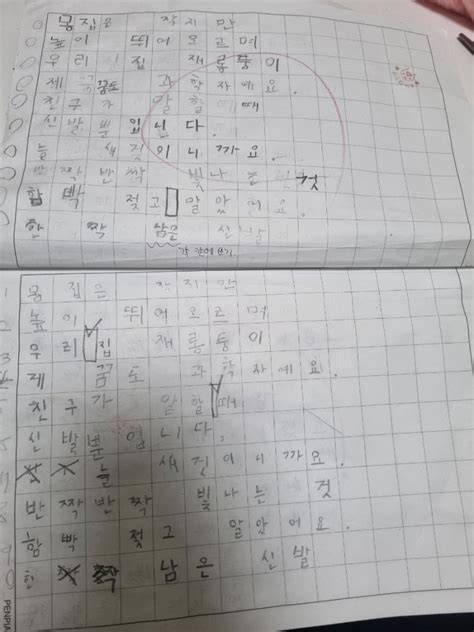 몸집은 작지만
높이 뛰어오르며
우리 집 재롱둥이
제 꿈도 과학자에요.
친구가 말할 때
신발뿐입니다.
늘 새것이니까요.
반짝반짝 빛나는 것
함빡 젖고 말았어요.
한 짝 남은 신발
1 몸집은 작지만
2 높이 뛰어오르며
3 우리 집 재롱둥이
4 제 꿈도 과학자에요.
친구가 말할 때
신발뿐입니다.
7 늘 새것이니까요.
8 반짝반짝 빛나는 것
9 함빡 젖고 말았어요.
한 짝 남은 신발
PENPIA